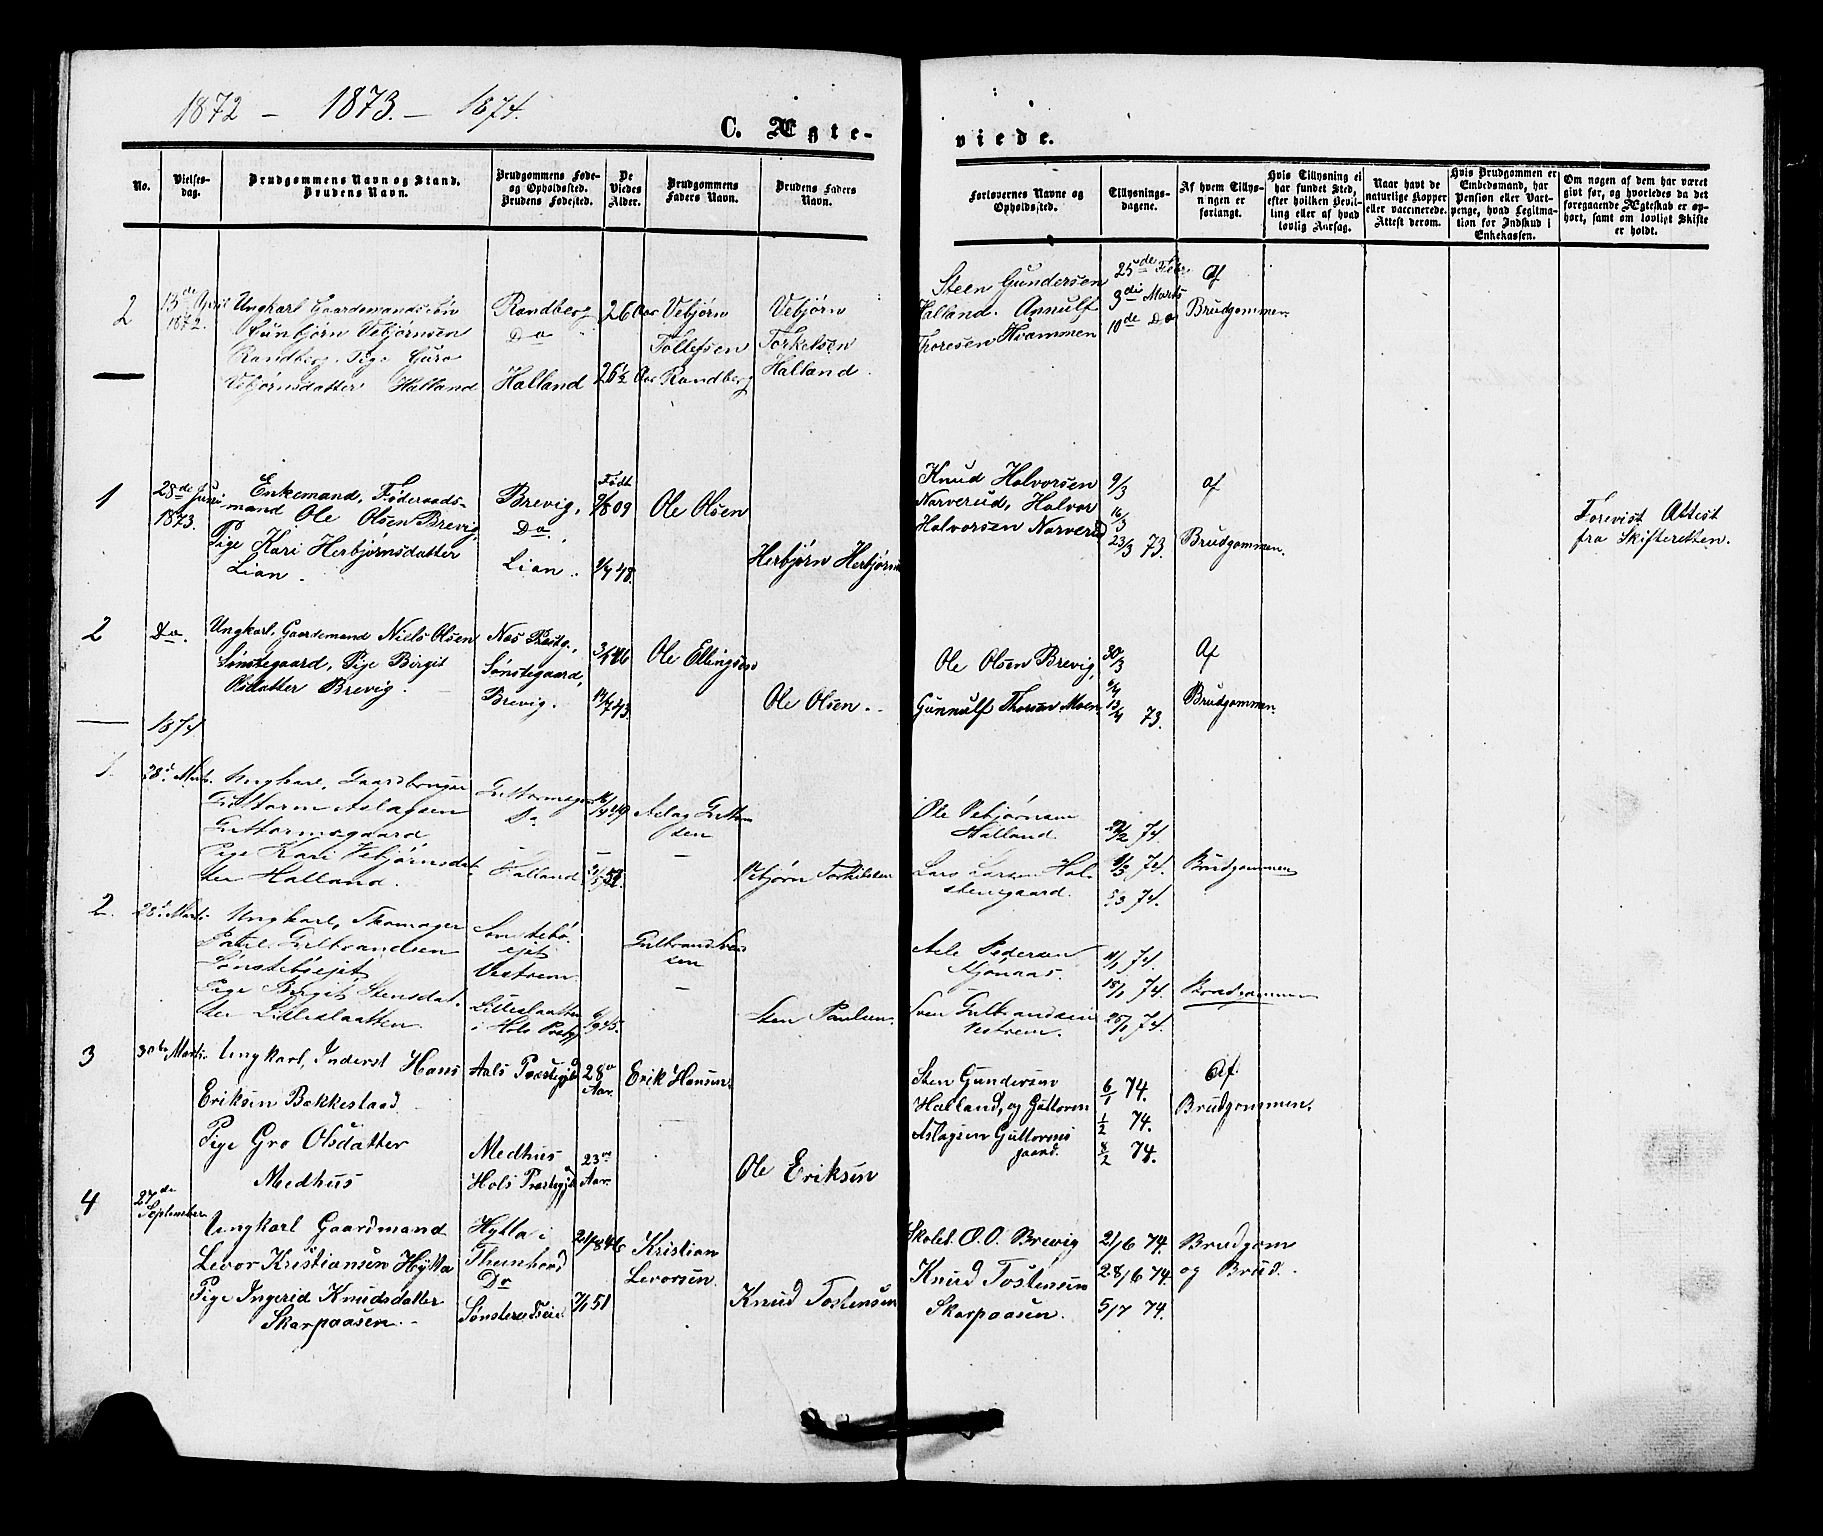 1872 – 1873. – 1874.
C. Ægte-
viede.
No.
Vielses-
dag.
Brudgommens Navn og Stand.
Brudens Navn.
Brudgommens Føde-
og Opholdssted.
Brudens Fødested.
De
Viedes
Alder.
Brudgommens
Faders Navn.
Brudens Faders
Navn.
Forlovernes Navne og
Opholdssted.
Tillysnings-
dagene.
Af hvem Tillys-
ningen er
forlangt.
Hvis Tillysning ei
har fundet Sted,
efter hvilken Bevil-
ling eller af hvad
lovlig Aarsag.
Naar havt de
naturlige Kopper
eller vaccinerede.
Attest derom.
Hvis Brudgommen er
Embedsmand, har
Pension eller Vart-
penge, hvad Legitima-
tion for Indskud i
Enkekassen.
Om nogen af dem har været
givt før, og hvorledes da det
foregaaende Ægteskab er op-
hørt, samt om lovligt Skifte
er holdt.
2
13de April
1872.
Ungkarl Gaardemandssøn
Vebjørnsen
Randberg. Pige Guro
Vebjørnsdatter Halland
Randberg
Do
Halland
26 Aar
26½ Aar
Vebjørn
Tollefsen
Randberg
Vebjørn
Torkelsen
Halland.
Steen Gundersen
Halland. Annulf
Thoresen Hvammen
25de Febr
3die Marts
10de Do
Af
Brudgommen
1
28de Juni
1873.
Enkemand, Føderaads-
mand Ole Olsen Brevig
Pige Kari Herbjørnsdatter
Lian.
Brevig,
Do.
Lian.
Født
9/8 09
9/7 48.
Ole Olsen
Herbjørn Herbjørns
Knud Halvorsen
Narverud, Halvor
Halvorsen Narverud
9/3
16/3
23/3 73.
af
Brudgommen.
Forevist Attest
fra Skifteretten.
2
Do.
Ungkarl, Gaardemand Niels Olsen
Sønstegaard, Pige Birgit
Olsdatter Brevig.
Nes Præstg.,
Sønstegaard,
Brevig.
3/4 46
14/7 43.
Ole Ellingsen
Ole Olsen.
Ole Olsen Brevig,
Gunnulf Thorsen Moen.
30/3
6/4
13/4 73.
Af
Brudgommen.
1874
1.
28d Marts.
Ungkarl, Gaardbruger
Guttorm Aslagsen
Guttormsgaard
Pige Kari Vebjørnsdat-
ter Halland.
Do
Halland
Aslag Guttorm
sen
Vebjørn Torkelsen
Ole Vebjørnsen
Halland.
Lars Larsen Hol-
stensgaard.
22/2 74.
1/3 74.
74.
Brudgommen
2.
28d Marts.
Ungkarl, Skomager
Gulbrandsen
Sønstebøejet
Pige Birgit Stensdat-
ter Lilleslaatten.
Sønstebø-
ejet
Vestrem
Lilleslaatten
i Hols Præstg
Gulbrand
sen
Sten Paulsen.
Pedersen
Sven Gulbrandsen
Vestrem.
11/1 74.
18/1 74.
25/1 74.
Brudgommen
3
30te Marts.
Ungkarl, Inderst Hans
Eriksen Bakkestaad
Pige Gro Olsdatter
Medhus
Aals Præstegjeld
Medhus
Hols Præstegjeld
28
Aar.
23
Aar.
Erik Hansen
Ole Eriksen
Sten Gundersen
Halland, og Guttorm
Aslagsen Guttorms
gaard.
6/1 74.
1/2 74.
8/2 74.
Af.
Brudgommen.
4
27de
September
Ungkarl Gaardmand
Levor Kristiansen Hytta
Pige Ingerid Knudsdatter
Skarpaasen.
Hytta i
Do
Sønstere Teie
21/8 46
7/1 51
Kristian
Levorsen.
Knud Tostensen
Skolel. O. O. Brevig
Knud Tostensen
Skarpaasen.
21/6 74.
28/6 74.
5/7 74.
Brudgom
og Brud.